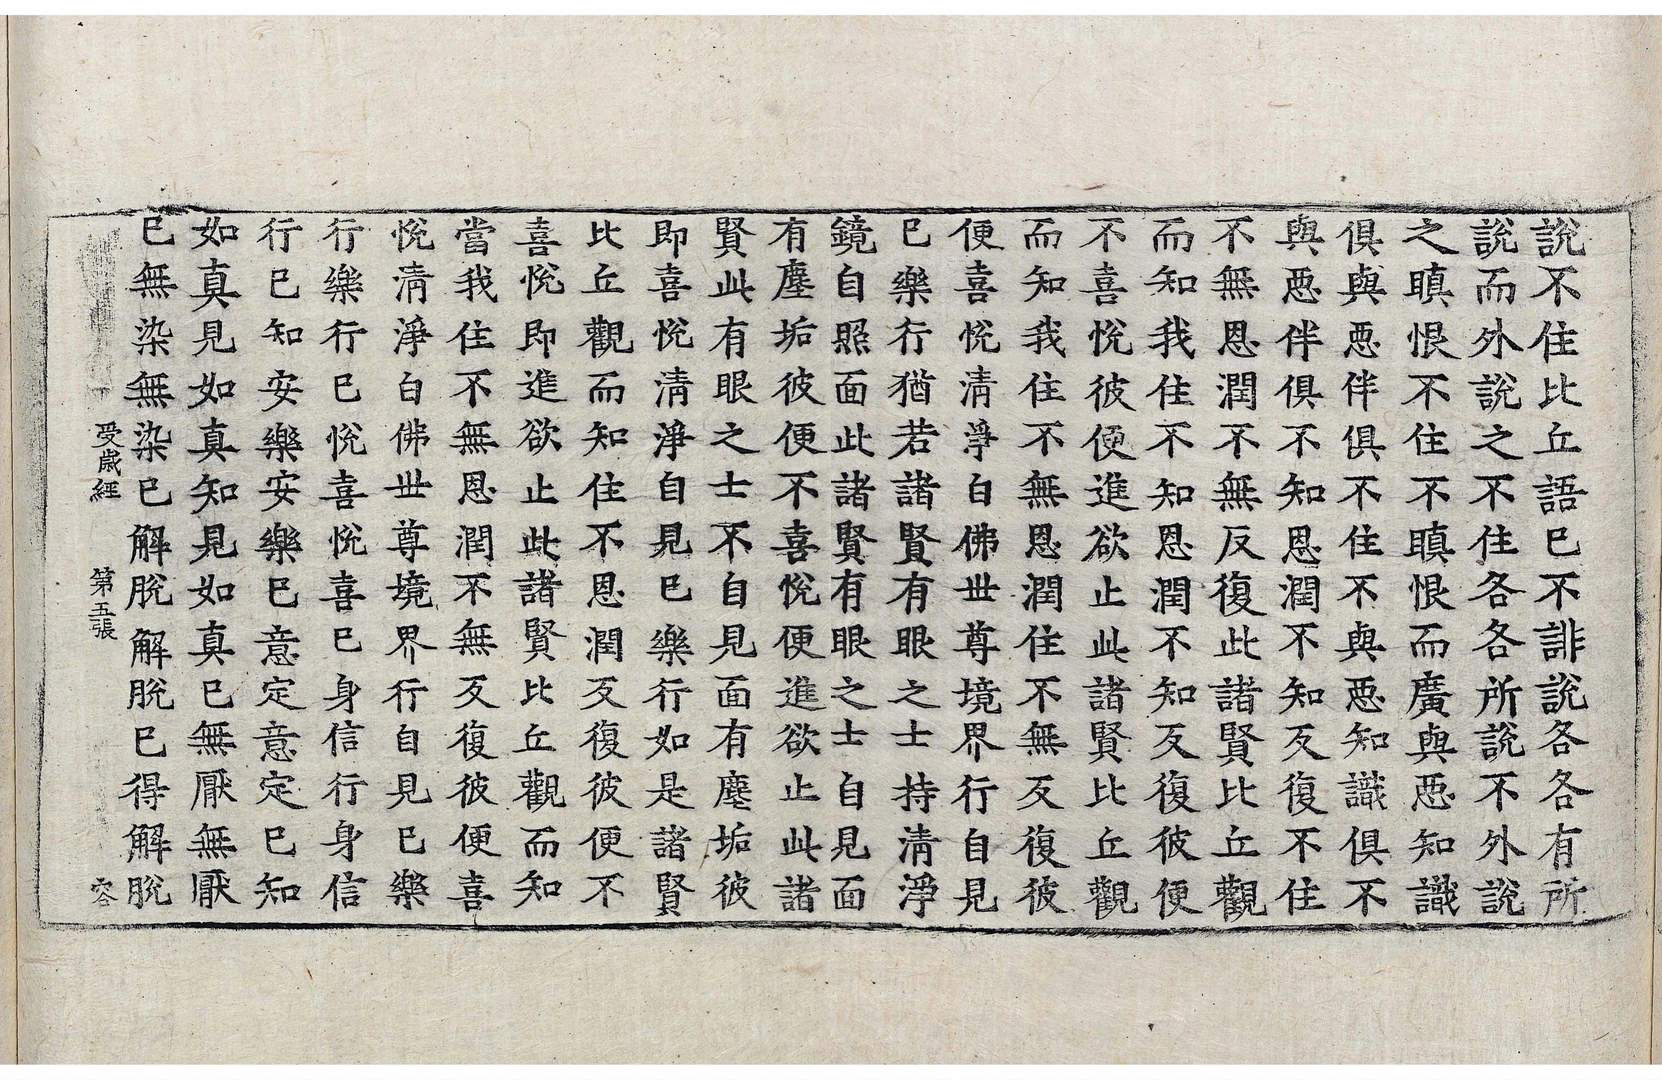 說不住比丘語已不誹說各各有所
說而外說之不住各各所說不外說
之瞋恨不住不瞋恨而廣與惡知識
俱與惡伴俱不住不與惡知識俱不
與惡伴俱不知恩潤不知反復不住
不無恩潤不無反復此諸賢比丘觀
而知我住不知恩潤不知反復彼便
不喜悅彼便進欲止此諸賢比丘觀
而知我住不無恩潤住不無反復彼
便喜悅清淨白佛世尊境界行自見
已樂行猶若諸賢有眼之士持清淨
鏡自照面此諸賢有眼之士自見面
有塵垢彼便不喜悅便進欲止此諸
賢此有眼之士不自見面有塵垢彼
即喜悅清淨自見已樂行如是諸賢
比丘觀而知住不恩潤反復彼便不
喜悅即進欲止此諸賢比丘觀而知
當我住不無恩潤不無反復彼便喜
悅清淨白佛世尊境界行自見已樂
行樂行已悅喜悅喜已身信行身信
行已知安樂安樂已意定意定已知
如真見如真知見如真已無厭無厭
已無染無染已解脫解脫已得解脫
受歲經 第五張